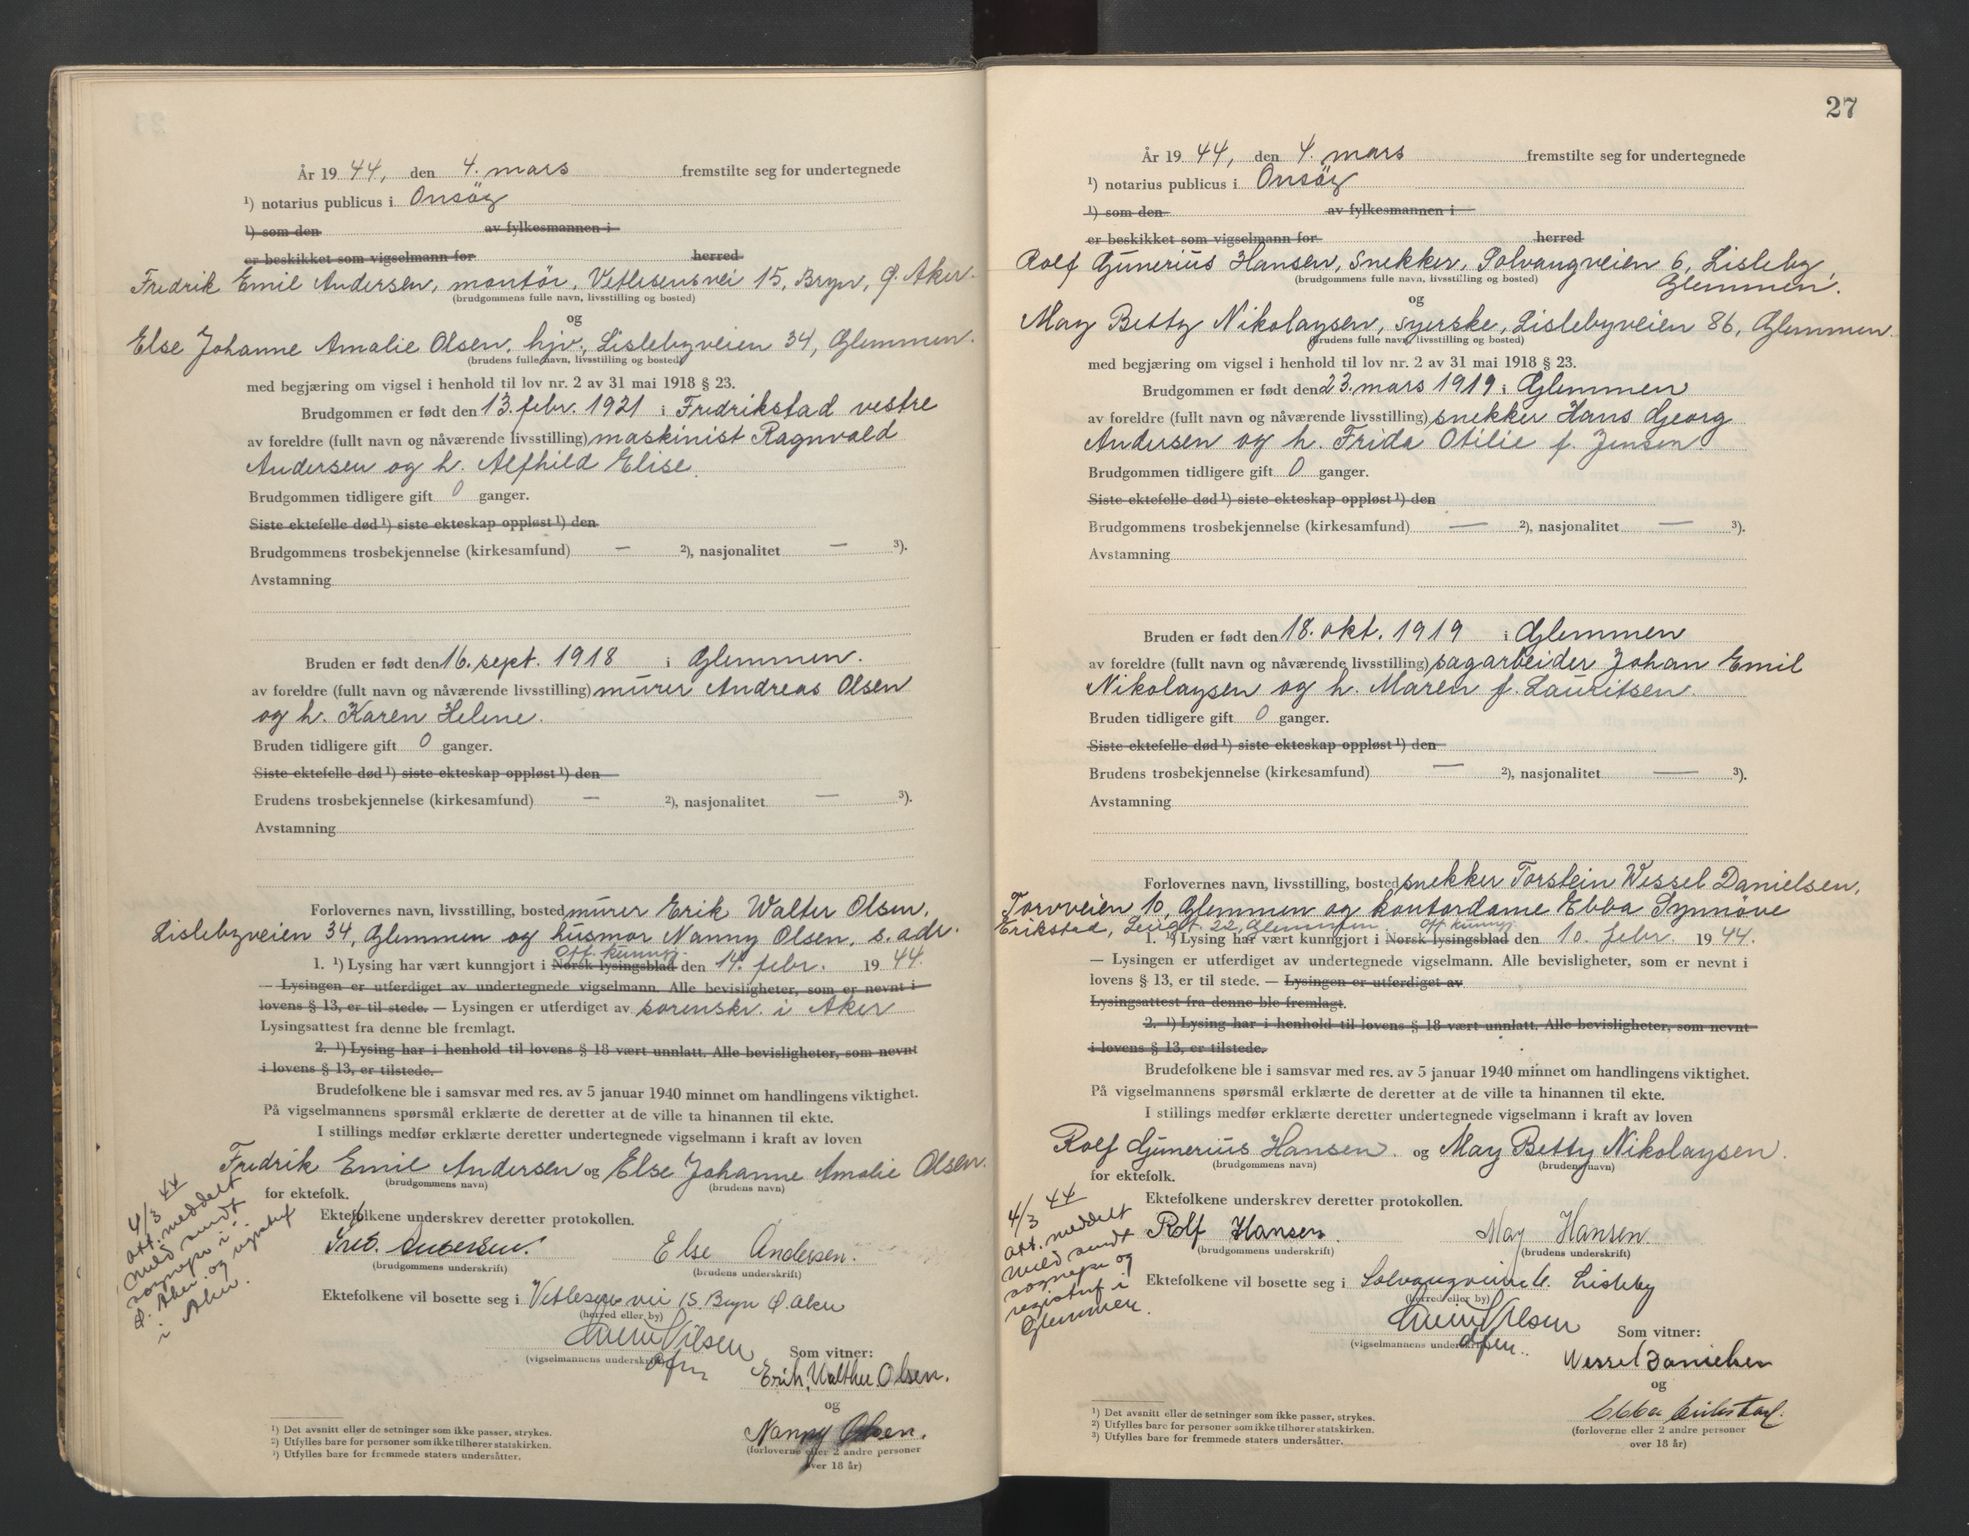 År 1944, den 4. mars fremstilte seg for undertegnede
¹) notarius publicus i Onsöy
¹) som den av fylkesmannen i
er beskikket som vigselmann for herred
Fredrik Emil Andersen, montör, Vetlesensvei 15, Bryn, Ø. Aker.
(brudgommens fulle navn, livsstilling og bosted)
og
Else Johanne Amalie Olsen, hjv., Lislebyveien 34, Glemmen.
(brudens fulle navn, livsstilling og bosted)
med begjæring om vigsel i henhold til lov nr. 2 av 31 mai 1918 § 23.
Brudgommen er født den 13. febr. 1921 i Fredrikstad vestre
av foreldre (fullt navn og nåværende livsstilling) maskinist Ragnvald
Andersen og h. Alfhild Elise.
Brudgommen tidligere gift 0 ganger.
Siste ektefelle død ¹) siste ekteskap oppløst ¹) den
Brudgommens trosbekjennelse (kirkesamfund) — ²), nasjonalitet — ³).
Avstamning
Bruden er født den 16. sept. 1918 i Glemmen.
av foreldre (fullt navn og nåværende livsstilling) murer Andreas Olsen
og h. Karen Helene.
Bruden tidligere gift 0 ganger.
Siste ektefelle død ¹) siste ekteskap oppløst ¹) den
Brudens trosbekjennelse (kirkesamfund) — ²), nasjonalitet — ³).
Avstamning
Forlovernes navn, livsstilling, bosted murer Erik Walter Olsen,
Lislebyveien 34, Glemmen og husmor Nanny Olsen, s. adr.
Off. kunngj.
1. ¹) Lysing har vært kunngjort i Norsk lysingsblad den 14. febr. 1944.
— Lysingen er utferdiget av undertegnede vigselmann. Alle bevisligheter, som er nevnt i
lovens § 13, er til stede. — Lysingen er utferdiget av sorenskr. i Aker
Lysingsattest fra denne ble fremlagt.
2. ¹) Lysing har i henhold til lovens § 18 vært unnlatt. Alle bevisligheter, som nevnt
i lovens § 13, er tilstede.
Brudefolkene ble i samsvar med res. av 5 januar 1940 minnet om handlingens viktighet.
På vigselmannens spørsmål erklærte de deretter at de ville ta hinannen til ekte.
I stillings medfør erklærte deretter undertegnede vigselmann i kraft av loven
Fredrik Emil Andersen og Else Johanne Amalie Olsen.
(brudgommens navn) (brudens navn)
for ektefolk.
Ektefolkene underskrev deretter protokollen.
Fred. Andersen. Else Andersen.
(brudgommens underskrift) (brudens underskrift)
Ektefolkene vil bosette seg i Vetlesensvei 15 Bryn Ø. Aker
(herred eller by)
(vigselmannens underskrift)
Som vitner:
Erik Walther Olsen.
og
Nanny Olsen.
(forloverne eller 2 andre personer
over 18 år)
4/3 44
att. meddelt
meld. sendt
sognepr. i
Ø. Aker og registerf
i Aker.
¹) Det avsnitt eller de setninger som ikke passer, strykes.
²) Utfylles bare for personer som ikke tilhører statskirken.
³) Utfylles bare for fremmede staters undersåtter.
27
År 1944, den 4. mars fremstilte seg for undertegnede
¹) notarius publicus i Onsöy
¹) som den av fylkesmannen i
er beskikket som vigselmann for herred
Rolf Gunerius Hansen, snekker, Solvangveien 6, Lisleby,
Glemmen.
(brudgommens fulle navn, livsstilling og bosted)
og
May Betty Nikolaysen, syerske, Lislebyveien 86, Glemmen
(brudens fulle navn, livsstilling og bosted)
med begjæring om vigsel i henhold til lov nr. 2 av 31 mai 1918 § 23.
Brudgommen er født den 23. mars 1919 i Glemmen
av foreldre (fullt navn og nåværende livsstilling) snekker Hans Georg
Andersen og h. Frida Otilie f. Jensen.
Brudgommen tidligere gift 0 ganger.
Siste ektefelle død ¹) siste ekteskap oppløst ¹) den
Brudgommens trosbekjennelse (kirkesamfund) — ²), nasjonalitet — ³).
Avstamning
Bruden er født den 18. okt. 1919 i Glemmen
av foreldre (fullt navn og nåværende livsstilling) sagarbeider Johan Emil
Nikolaysen og h. Maren f. Lauritsen.
Bruden tidligere gift 0 ganger.
Siste ektefelle død ¹) siste ekteskap oppløst ¹) den
Brudens trosbekjennelse (kirkesamfund) — ²), nasjonalitet — ³).
Avstamning
Forlovernes navn, livsstilling, bosted snekker Torstein Wessel Danielsen,
Torvveien 10, Glemmen og kontordame Ebba Synnöve
Erikstad, 22, Glemmen. Off. kunngj.
1. ¹) Lysing har vært kunngjort i Norsk lysingsblad den 10. febr. 1944.
— Lysingen er utferdiget av undertegnede vigselmann. Alle bevisligheter, som er nevnt i
lovens § 13, er til stede. — Lysingen er utferdiget av
Lysingsattest fra denne ble fremlagt.
2. ¹) Lysing har i henhold til lovens § 18 vært unnlatt. Alle bevisligheter, som nevnt
i lovens § 13, er tilstede.
Brudefolkene ble i samsvar med res. av 5 januar 1940 minnet om handlingens viktighet.
På vigselmannens spørsmål erklærte de deretter at de ville ta hinannen til ekte.
I stillings medfør erklærte deretter undertegnede vigselmann i kraft av loven
Rolf Gunerius Hansen. og May Betty Nikolaysen.
(brudgommens navn) (brudens navn)
for ektefolk.
Ektefolkene underskrev deretter protokollen.
Rolf Hansen. May Hansen
(brudgommens underskrift) (brudens underskrift)
Ektefolkene vil bosette seg i Solvangveien 6. Lisleby
(herred eller by)
(vigselmannens underskrift)
Som vitner:
Wessel Danielsen
og
Ebba Erikstad.
(forloverne eller 2 andre personer
over 18 år)
4/3 44
att. meddelt
meld sendt
sognepr og
registerf i
Glemmen.
¹) Det avsnitt eller de setninger som ikke passer, strykes.
²) Utfylles bare for personer som ikke tilhører statskirken.
³) Utfylles bare for fremmede staters undersåtter.